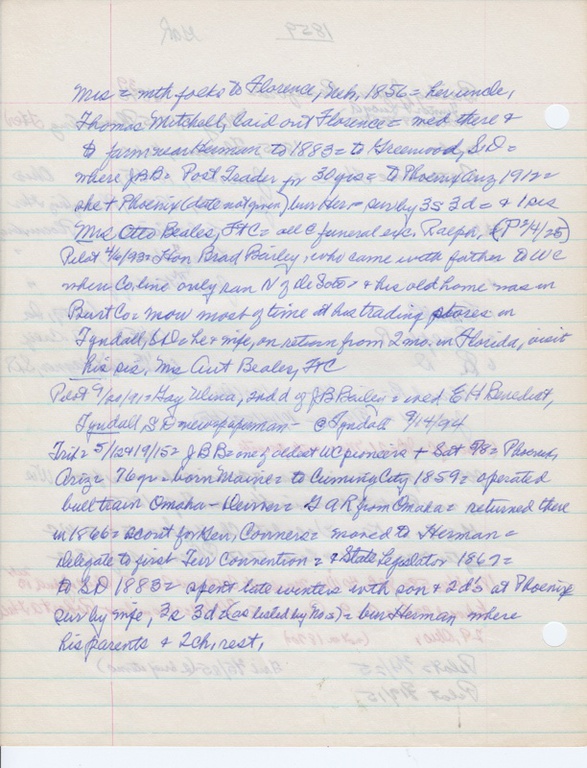 Mrs = with folks to Florence, Neb, 1856 = her uncle,
Thomas Mitchell, laid out Florence = med there &
to farm near Herman to 1883 = to Greenwood, S.D =
where JBB = Post Trader for 30 yrs = to Phoenix Ariz 1912 =
she + Phoenix (date not given) bur Her = sur by 3s 3d = & 1 sis
Mrs Otto Beales, FtC = all @ funeral exc. Ralph, (P 2/4/25)
Pilot = Hon Brad Bailey, who came with father to WC
when Co. line only ran N of De Soto = & his old home was in
Burt Co = now most of time at his trading stores in
Tyndall, S.D = he & wife, on return from 2 mo. in Florida, visit
his sis, Mrs Aut Beales, FtC
Pilot 9/ /91 = May Ulina, 2nd d of JB Bailey = wed E H Benedict,
Tyndall S D newspaperman - @ Tyndall 9/14/94
Trib = 5/12 + 19/15 = JBB = one of oldest WC pioneers + Sat 5/8 = Phoenix,
Ariz = 76 yr = born Maine = to Cuming City 1859 = operated
bull train Omaha - Denver = G A R from Omaha = returned there
in 1866 = scout for Gen, Conners = moved to Herman =
Delegate to first Terr Convention = & State Legislator 1867 =
to SD 1883 = spent late winters with son & 2 ds at Phoenix
sur by wife, 3s 3d (as listed by No 2) = bur Herman where
his parents & 2 ch, rest,
1859